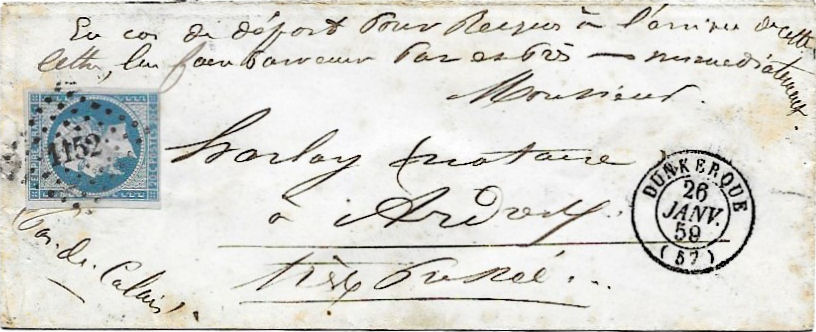 En cas de départ pour Recques à l'arrivée de cette
lettre, la faire parvenir par exprès — immédiatement.
Monsieur
Harlay (notaire)
à Ardres
très pressé...
Pas-de-Calais
1152
DUNKERQUE
26
JANV.
59
(57)